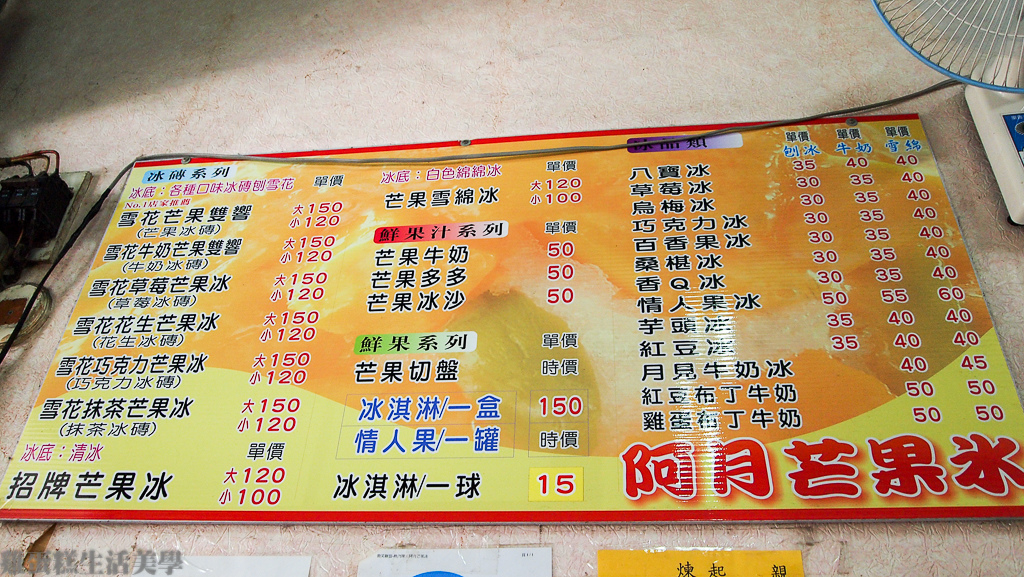 冰磚系列
冰底：各種口味冰磚刨雪花 單價
No.1店家推薦
雪花芒果雙響 大150
(芒果冰磚) 小120
雪花牛奶芒果雙響 大150
(牛奶冰磚) 小120
雪花草莓芒果冰 大150
(草莓冰磚) 小120
雪花花生芒果冰 大150
(花生冰磚) 小120
雪花巧克力芒果冰 大150
(巧克力冰磚) 小120
雪花抹茶芒果冰 大150
(抹茶冰磚) 小120
冰底：清冰 單價
招牌芒果冰 大120
小100
冰底：白色綿綿冰 單價
芒果雪綿冰 大120
小100
鮮果汁系列 單價
芒果牛奶 50
芒果多多 50
芒果冰沙 50
鮮果系列 單價
芒果切盤 時價
冰淇淋/一盒 150
情人果/一罐 時價
冰淇淋/一球 15
冰品類 單價 單價 單價
刨冰 牛奶 雪綿
八寶冰 35 40 40
草莓冰 30 35 40
烏梅冰 30 35 40
巧克力冰 30 35 40
百香果冰 30 35 40
桑椹冰 30 35 40
香Q冰 30 35 40
情人果冰 50 55 60
芋頭冰 35 40 40
紅豆冰 35 40 40
月見牛奶冰 40 45
紅豆布丁牛奶 50 50
雞蛋布丁牛奶 50 50
阿月芒果冰
雞蛋糕生活美學
煉 起 親